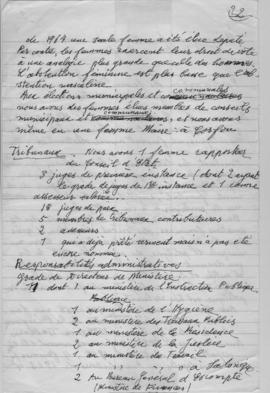 22
de 1964 une seule femme a été élue député.
Par contre, les femmes exercent leur droit de vote
à une analogie plus grande que celle des hommes.
L'abstention feminine est plus basse que l'ab-
stention masculine.
Aux élections municipales et communales
nous avons des femmes elues membres de conseils
municipaux et communaux, et nous avons
même en une femme Maire : à Corfou
Tribunaux. Nous avons 1 femme rapporteur
du Conseil d'Etat
8 juges de première instance (dont 2 ayant
le grade de juges de 1ère instance et 1 comme
assesseur
18 juges de paix
5 membres de tribunaux contributives
2
1 qui a déjà prêté serment mais n'a pas été
encore nommée.
Responsabilités administratives
Grade de Directeur de Ministère
11 dont 1 au ministère de l'Instruction Publique
1 au ministère de l'Hygiène
2 au ministère des Travaux Publics
1 au ministère de la Présidence
2 au ministère de la Justice
1 au ministère du Travail
1 " " " à Salonique
2 Au Bureau General d'Escompte
(Ministre de Finances)